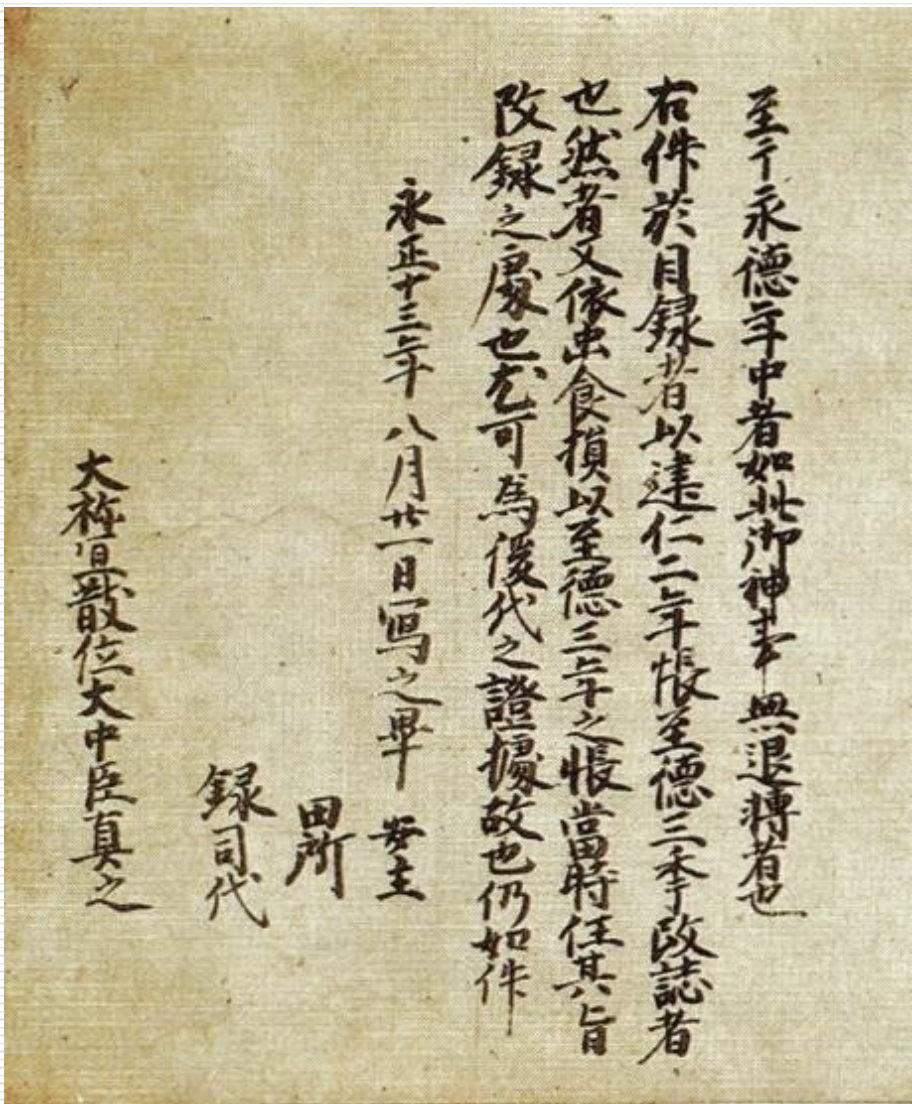 至于永德年中者如此御神事無退轉者也
右件於目録者以建仁二年帳至德三季改誌者
也然者又依虫食損以至德三年之帳當時任其旨
改録之處也尤可為後代之證據故也仍如件
永正十三年八月廿一日寫之畢 案主
田所
録司代
大祢宜散位大中臣真之